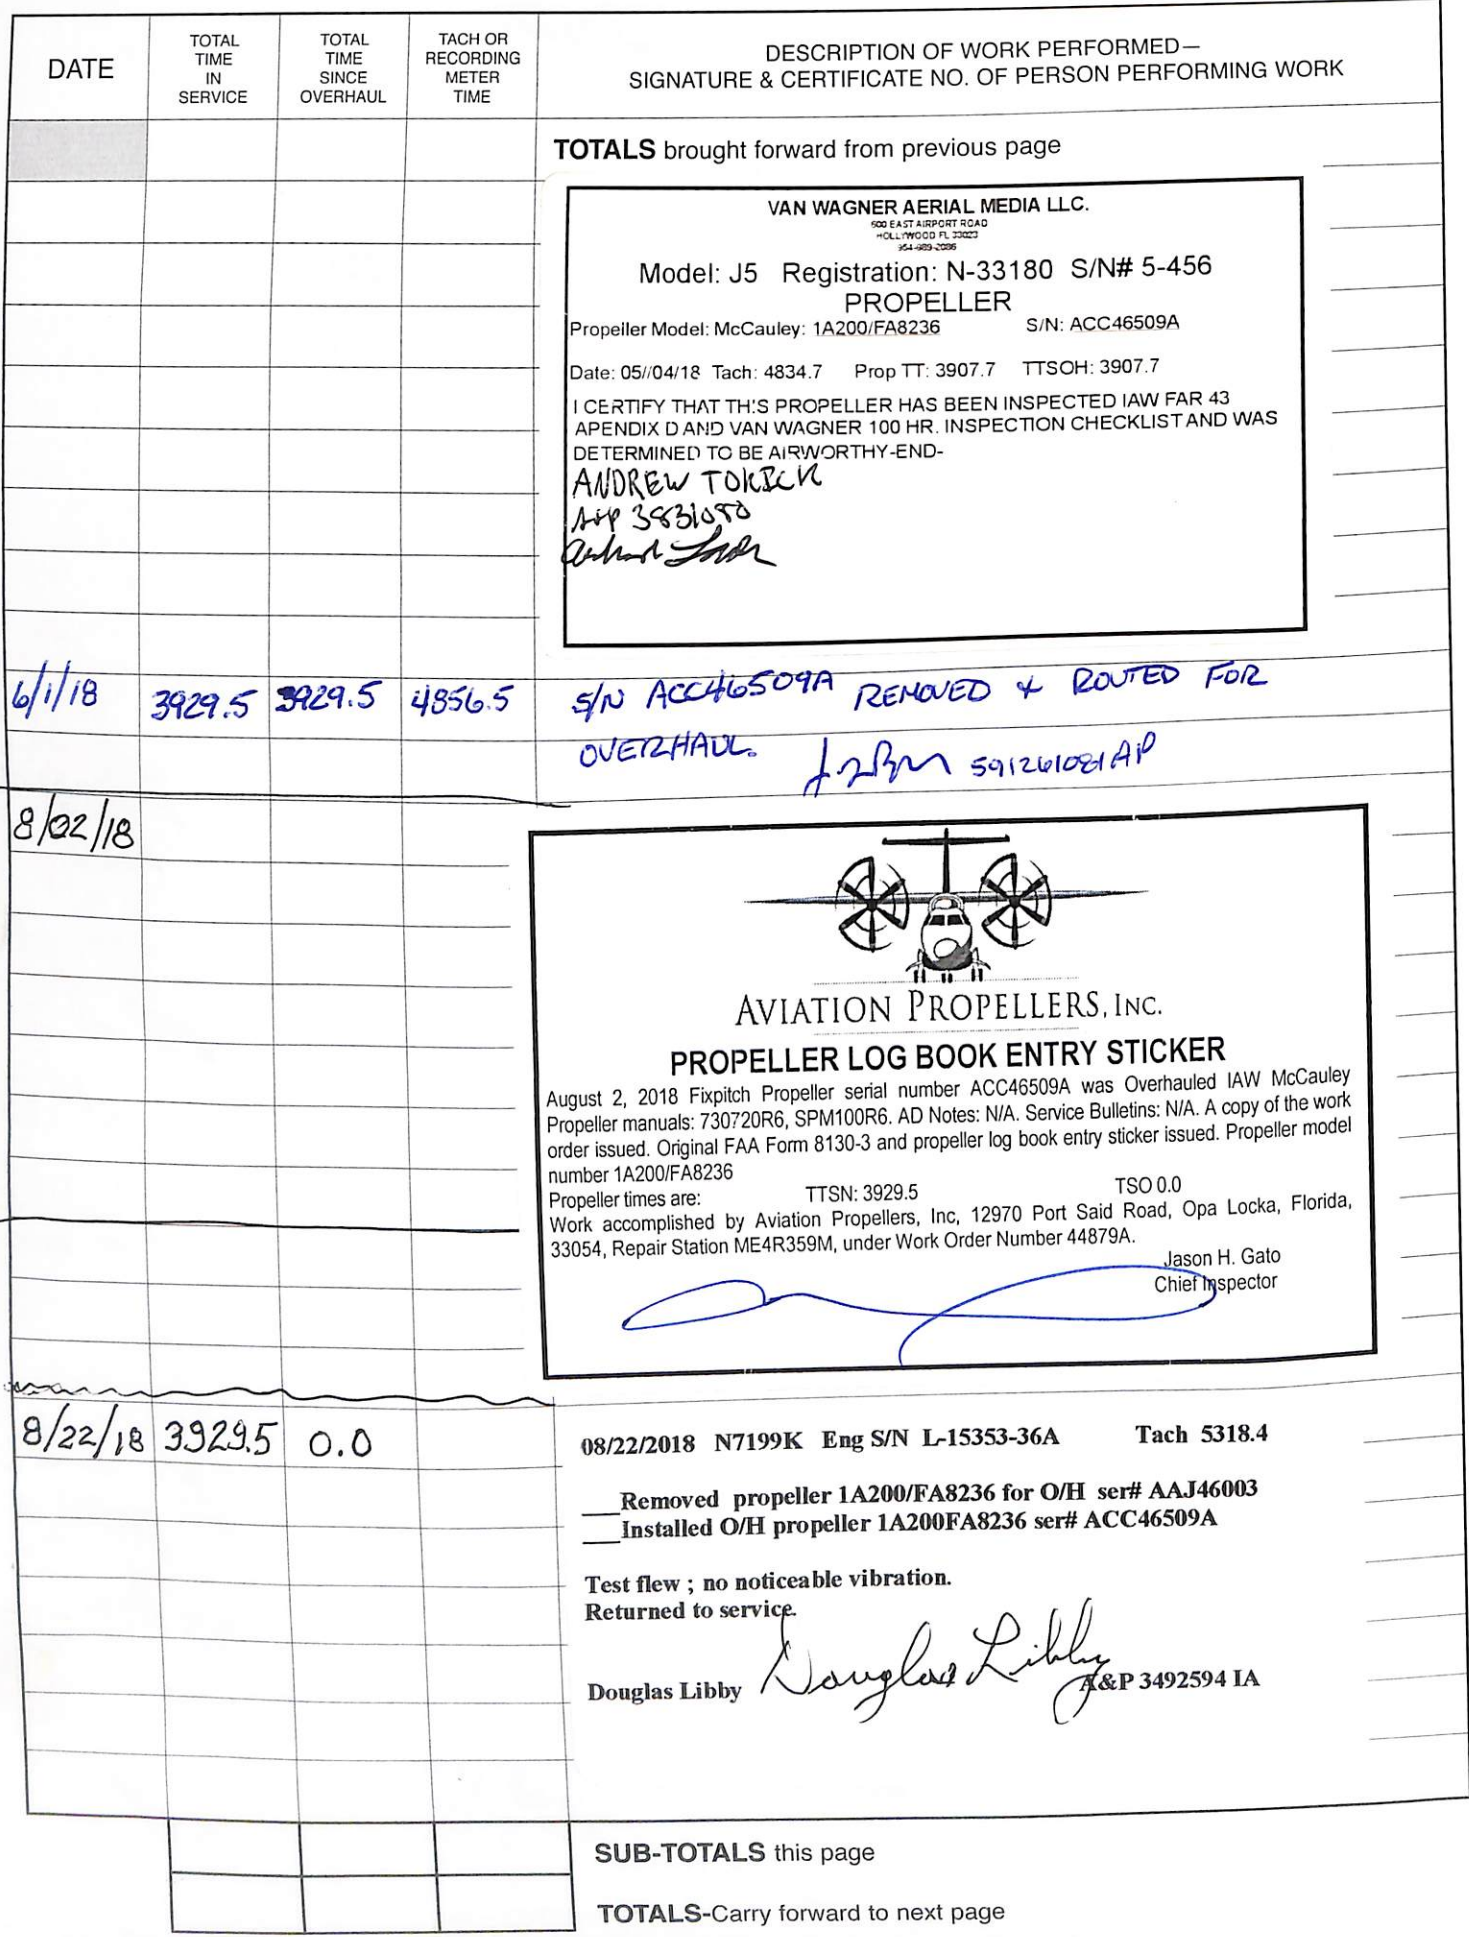 DATE
TOTAL TIME IN SERVICE
TOTAL TIME SINCE OVERHAUL
TACH OR RECORDING METER TIME
DESCRIPTION OF WORK PERFORMED—
SIGNATURE & CERTIFICATE NO. OF PERSON PERFORMING WORK
TOTALS brought forward from previous page
VAN WAGNER AERIAL MEDIA LLC.
500 EAST AIRPORT ROAD
HOLLYWOOD FL 33023
954-989-2086
Model: J5 Registration: N-33180 S/N# 5-456
PROPELLER
Propeller Model: McCauley: 1A200/FA8236 S/N: ACC46509A
Date: 05//04/18 Tach: 4834.7 Prop TT: 3907.7 TTSOH: 3907.7
I CERTIFY THAT TH:S PROPELLER HAS BEEN INSPECTED IAW FAR 43
APENDIX D AND VAN WAGNER 100 HR. INSPECTION CHECKLIST AND WAS
DETERMINED TO BE AIRWORTHY-END-
ANDREW TOKICK
A+P 3831080
6/1/18 3929.5 3929.5 4856.5 S/N ACC46509A REMOVED & ROUTED FOR
OVERHAUL. 591261081 AP
8/02/18
AVIATION PROPELLERS, INC.
PROPELLER LOG BOOK ENTRY STICKER
August 2, 2018 Fixpitch Propeller serial number ACC46509A was Overhauled IAW McCauley
Propeller manuals: 730720R6, SPM100R6. AD Notes: N/A. Service Bulletins: N/A. A copy of the work
order issued. Original FAA Form 8130-3 and propeller log book entry sticker issued. Propeller model
number 1A200/FA8236
Propeller times are: TTSN: 3929.5 TSO 0.0
Work accomplished by Aviation Propellers, Inc, 12970 Port Said Road, Opa Locka, Florida,
33054, Repair Station ME4R359M, under Work Order Number 44879A.
Jason H. Gato
Chief Inspector
8/22/18 3929.5 0.0
08/22/2018 N7199K Eng S/N L-15353-36A Tach 5318.4
___Removed propeller 1A200/FA8236 for O/H ser# AAJ46003
___Installed O/H propeller 1A200FA8236 ser# ACC46509A
Test flew ; no noticeable vibration.
Returned to service.
Douglas Libby Douglas Libby A&P 3492594 IA
SUB-TOTALS this page
TOTALS-Carry forward to next page